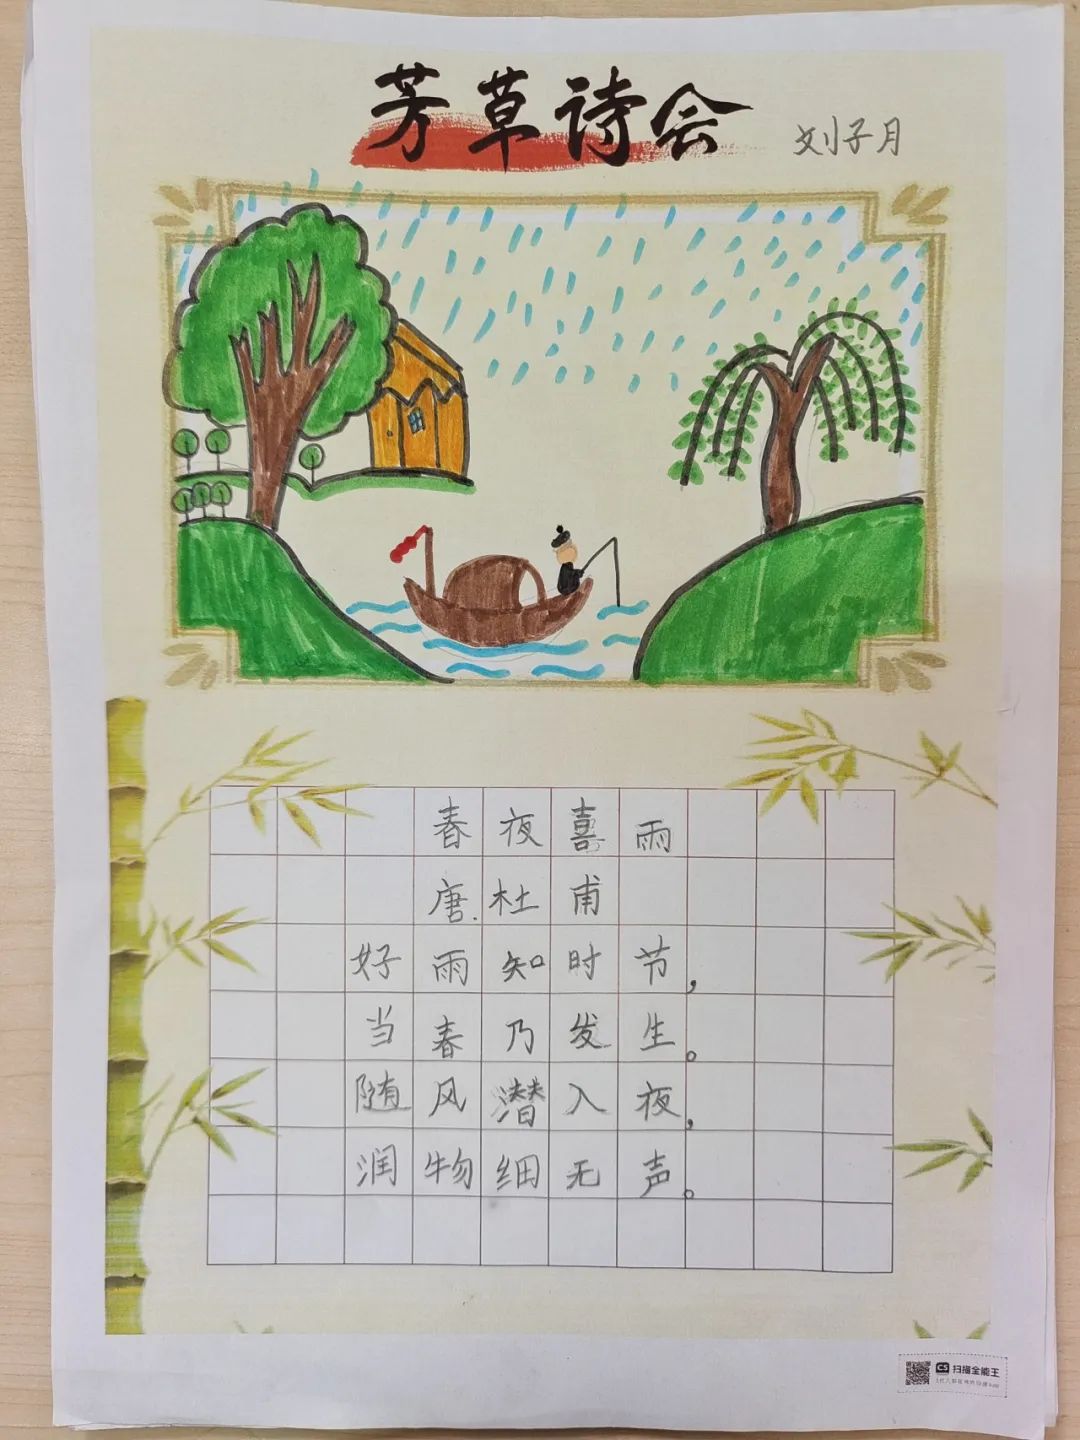 芳草诗会
刘子月
春夜喜雨
唐.杜甫
好雨知时节，
当春乃发生。
随风潜入夜，
润物细无声。
CS 扫描全能王